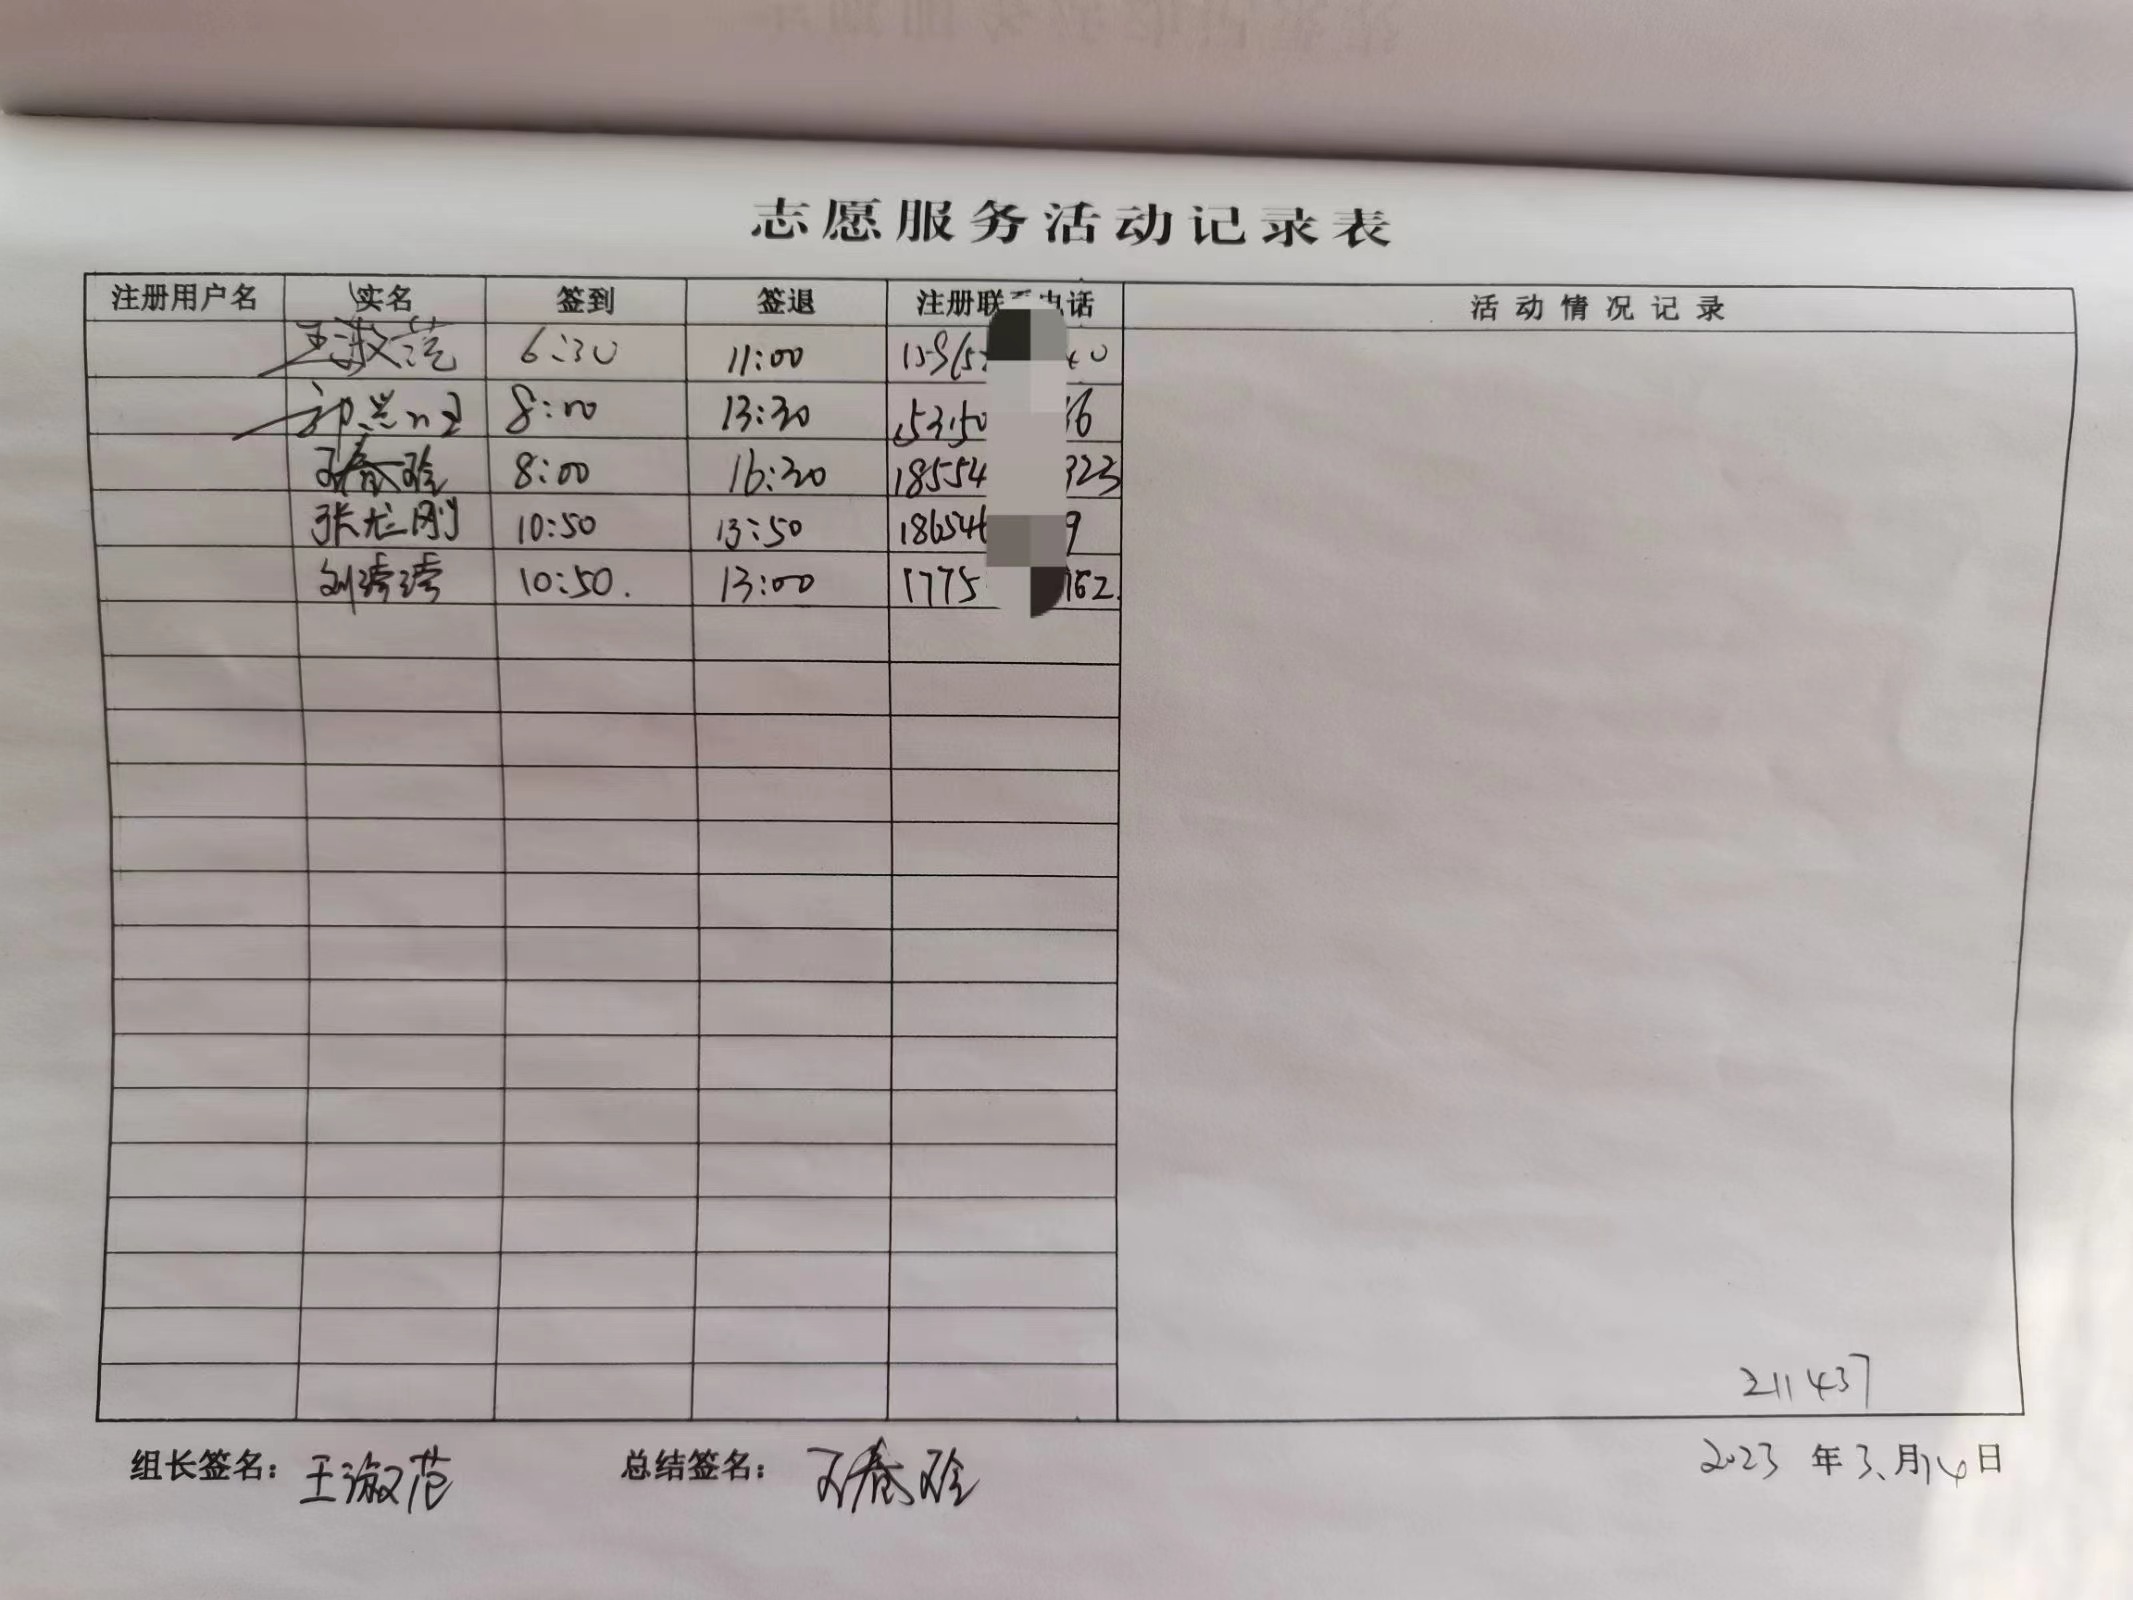 志愿服务活动记录表
注册用户名 实名 签到 签退 注册联 电话 活动情况记录
王淑范 6:30 11:00 40
8:00 13:30 36
王春玲 8:00 16:30 18554 323
张光刚 10:50 13:50 18654 9
刘琇琇 10:50. 13:00 1775 762.
211437
组长签名：王淑范 总结签名：王春玲 2023年3.月14日